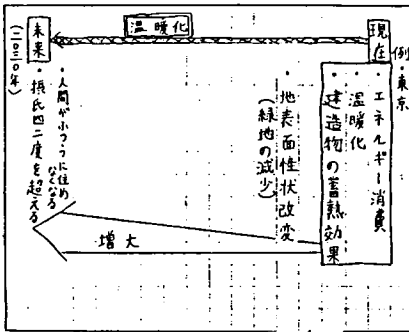 現在
例・東京
エネルギー消費
温暖化
建造物の蓄熱効果
・地表面性状改変
(緑地の減少)
温暖化
増大
未来
(二〇三〇年)
・人間がふつうに住め
なくなる
・摂氏四二度を超える